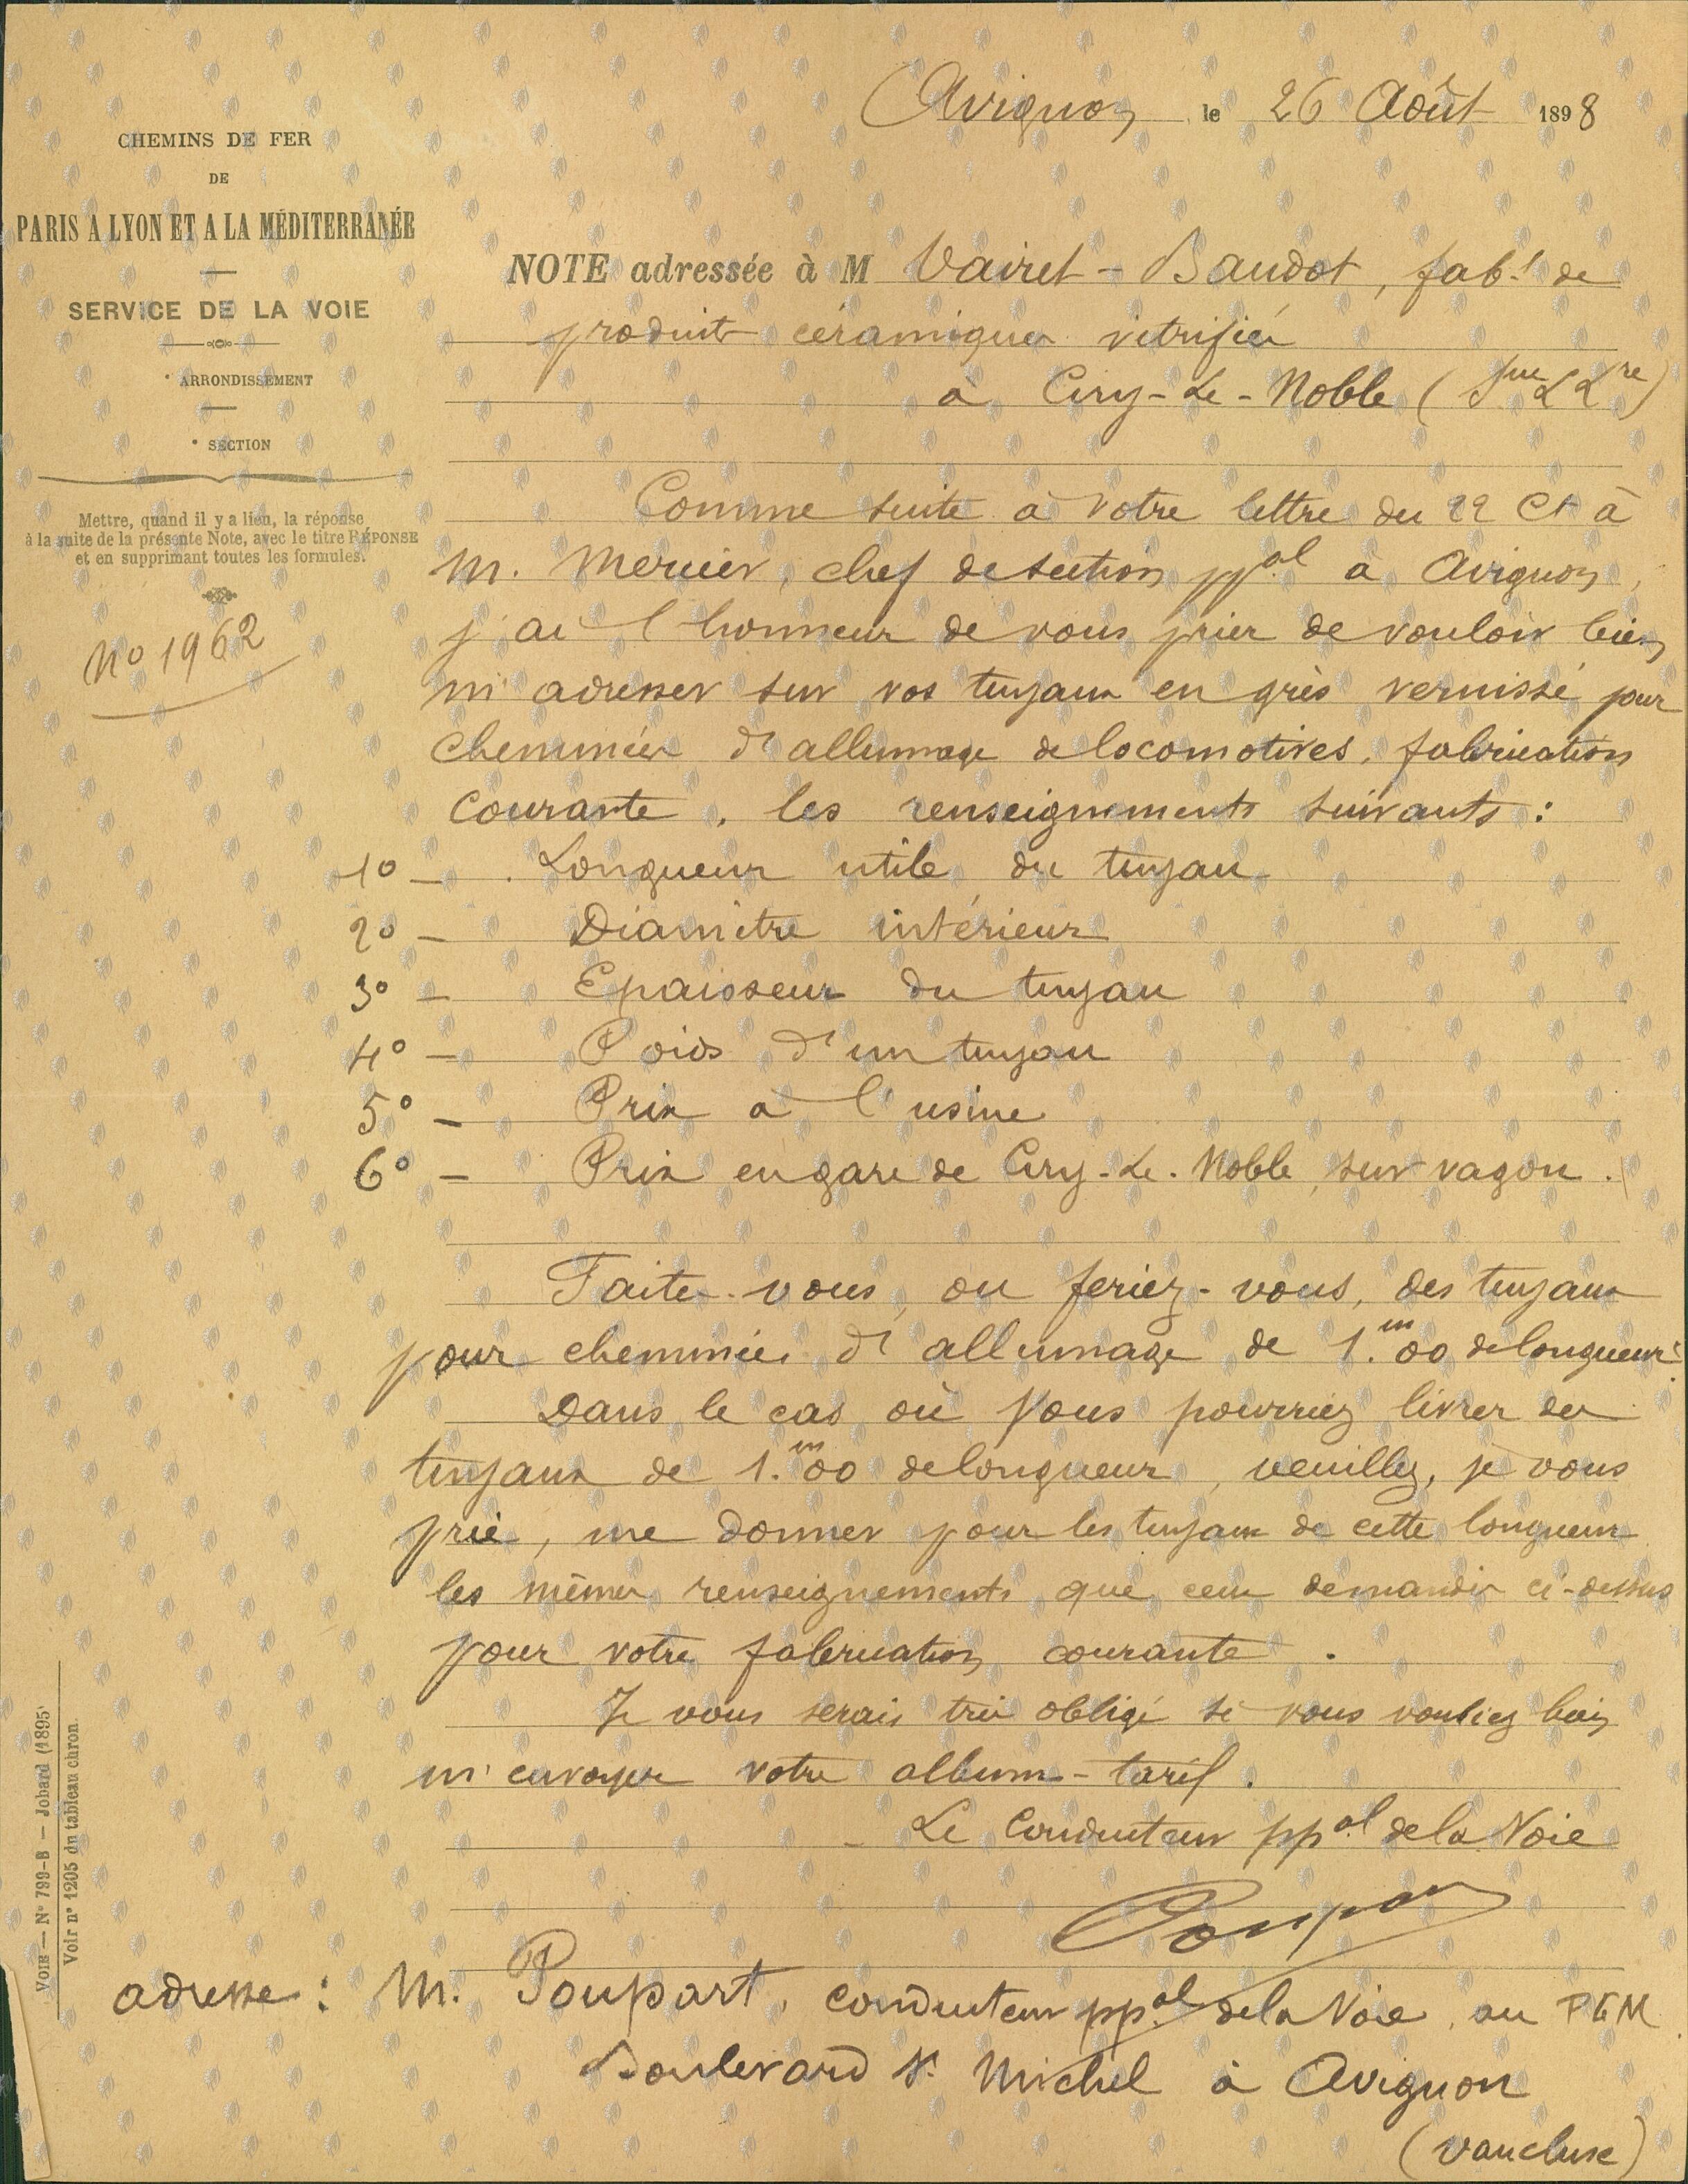 Avignon, le 26 Août 1898
CHEMINS DE FER
DE
PARIS A LYON ET A LA MÉDITERRANÉE
SERVICE DE LA VOIE
° ARRONDISSEMENT
° SECTION
Mettre, quand il y a lieu, la réponse
à la suite de la présente Note, avec le titre RÉPONSE
et en supprimant toutes les formules.
No 1962
NOTE adressée à M Vairet-Baudot, fabt de
produits céramiques vitrifiés
à Ciry-Le-Noble (Sne & Lre)
Comme suite à votre lettre du 22 Ct à
M. Mercier, chef de section ppal à Avignon,
j'ai l'honneur de vous prier de vouloir bien
m'adresser sur vos tuyaux en grès vernissé pour
cheminées d'allumage de locomotives, fabrication
courante, les renseignements suivants :
1o — Longueur utile du tuyau
2o — Diamètre intérieur
3o — Epaisseur du tuyau
4o — Poids d'un tuyau
5o — Prix à l'usine
6o — Prix en gare de Ciry-Le-Noble, sur vagon.
Faites-vous, ou feriez-vous, des tuyaux
pour cheminées d'allumage de 1.m00 de longueur?
Dans le cas où vous pourriez livrer des
tuyaux de 1.m00 de longueur, veuillez, je vous
prie, me donner pour les tuyaux de cette longueur
les mêmes renseignements que ceux demandés ci-dessus
pour votre fabrication courante.
Je vous serais très obligé si vous vouliez bien
m'envoyer votre album-tarif.
Le Conducteur ppal de la Voie
Poupart
adresse : M. Poupart, conducteur ppal de la Voie, au PLM
Boulevard St Michel à Avignon
(Vaucluse)
VOIE — N° 799-B — Jobard (1895)
Voir n° 1205 du tableau chron.